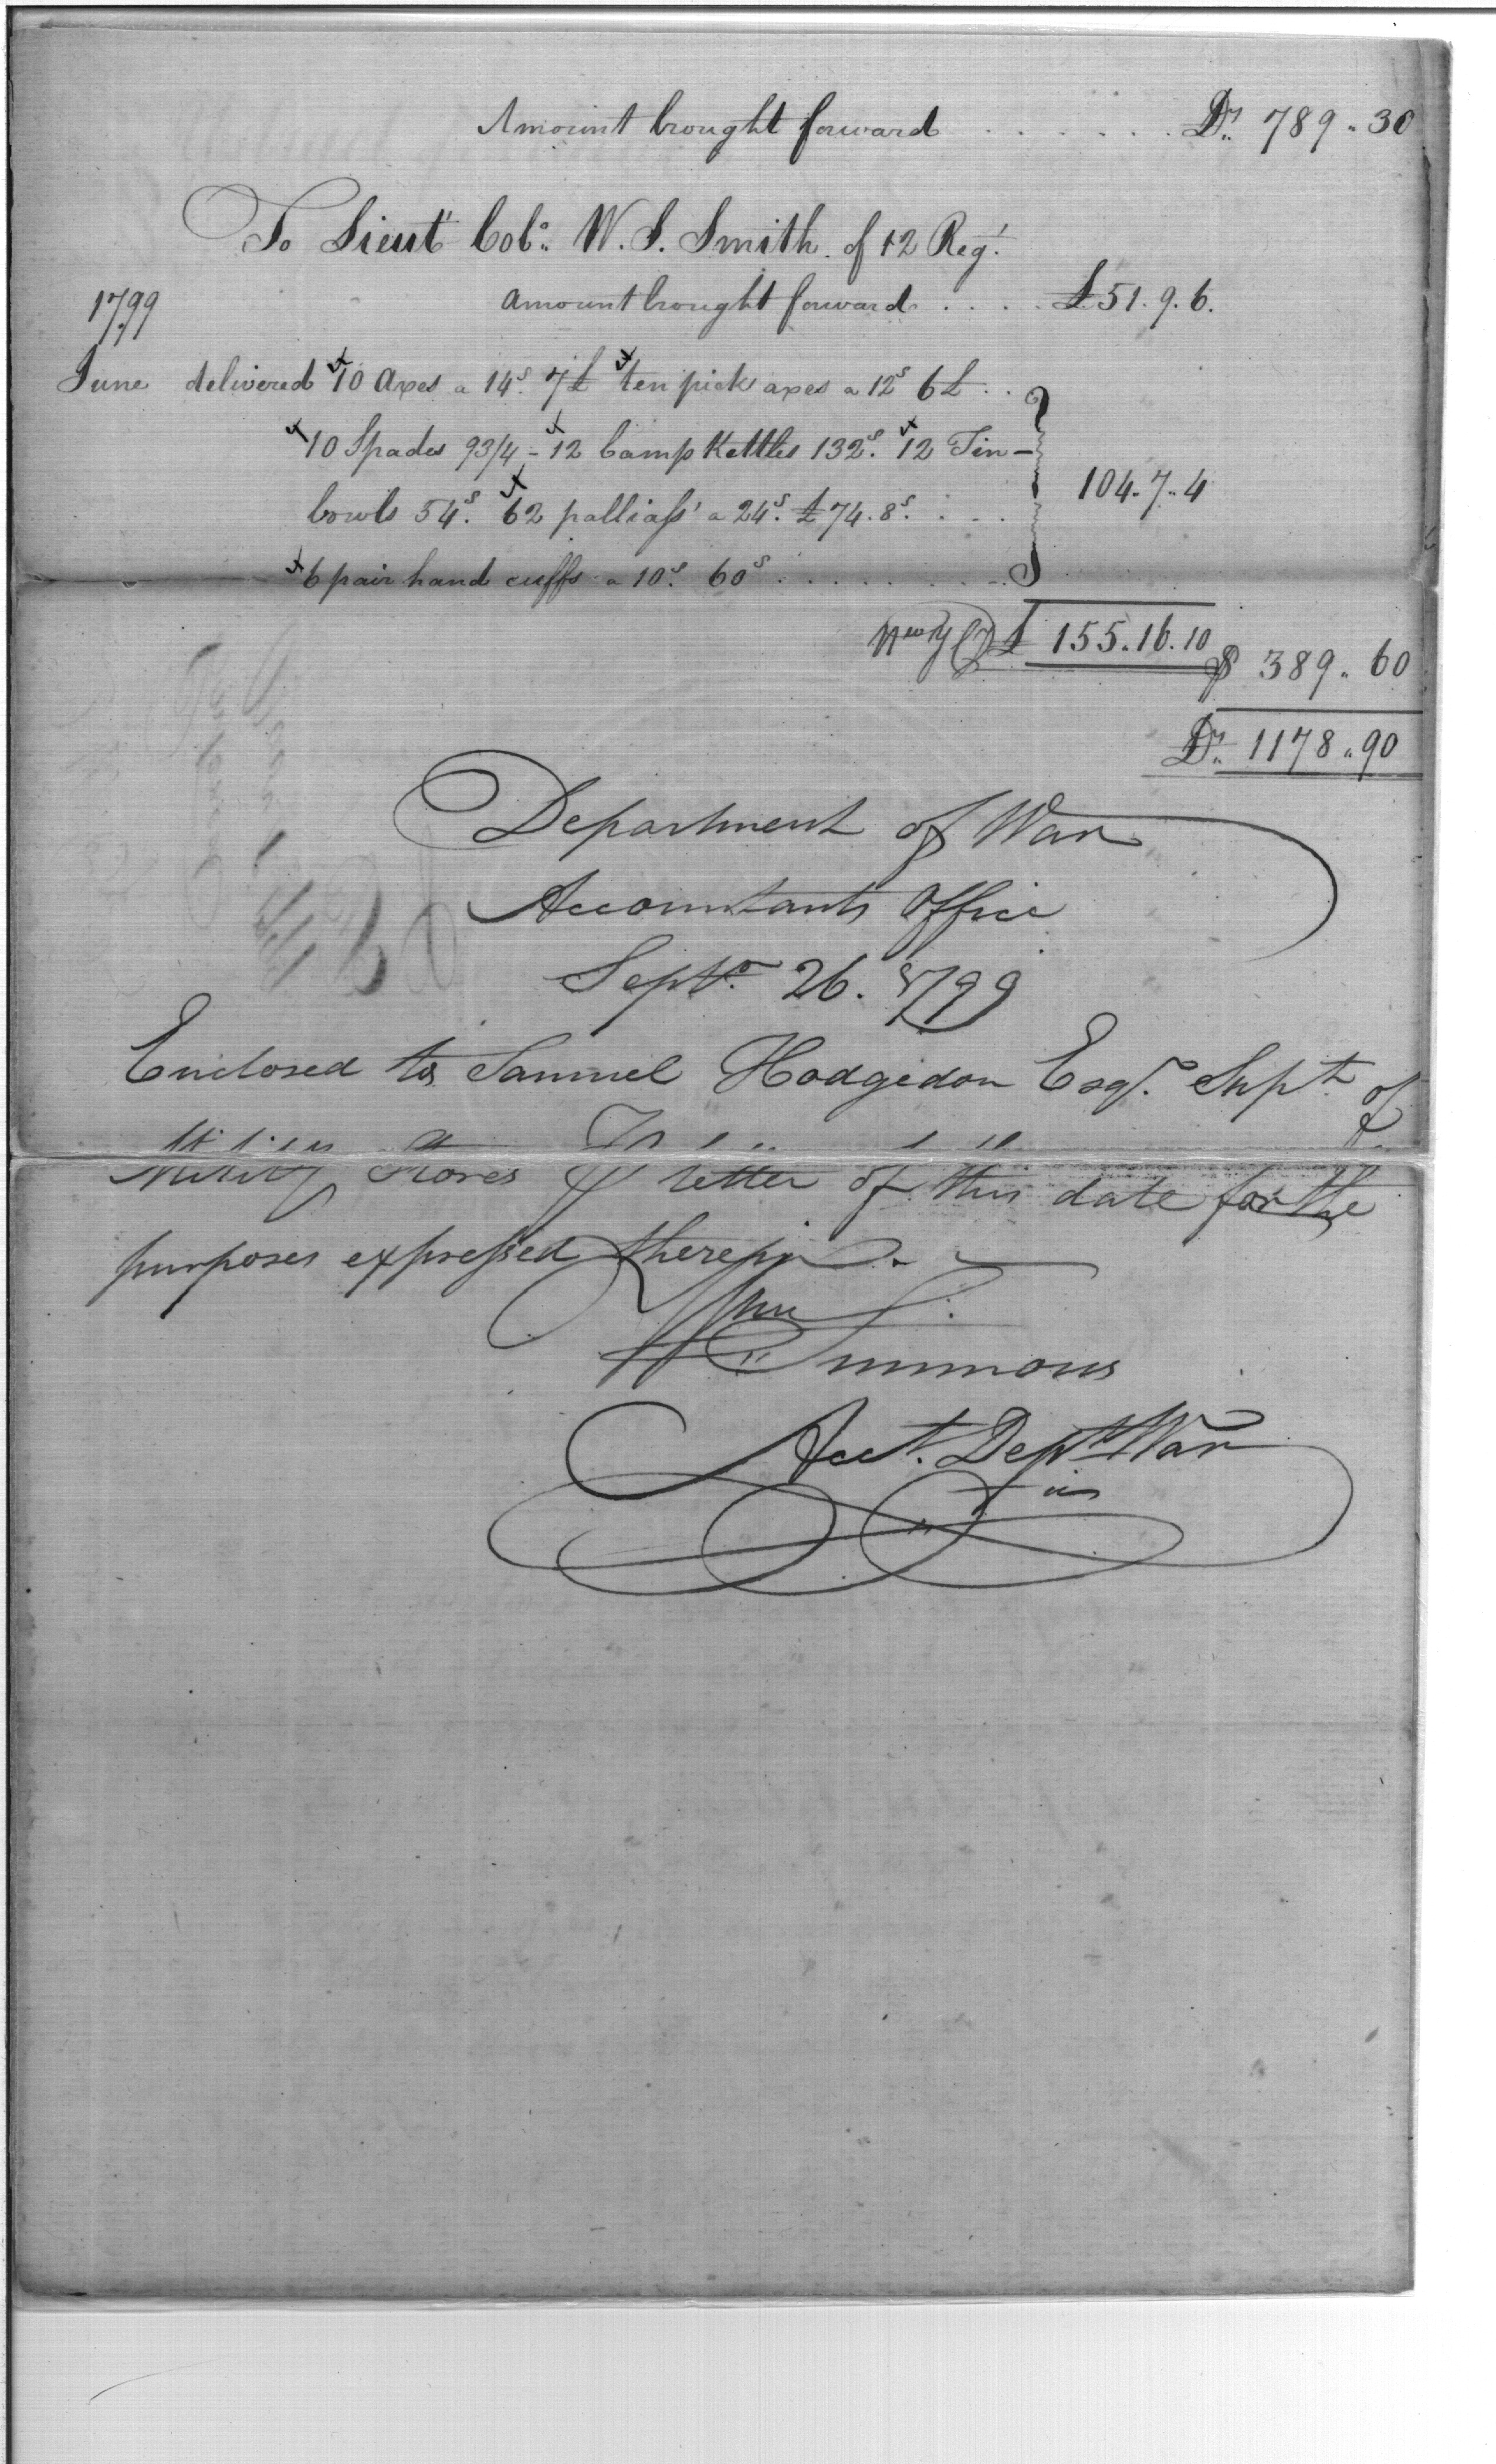 Amount brought forward . . . . . . Dr. 789.30
To Lieut Colo. W. S. Smith of 12 Regt.
1799 amount brought forward . . . . £51.9.6.
June delivered 10 axes a 14s. 7£ ten pick axes a 12s 6£ . .
10 Spades 93/4 - 12 Camp Kettles 132s. 12 Tin -
bowls 54s. 62 palliass' a 24s. £74.8s. . . . 104.7.4
6 pair hand cuffs a 10s. 60s . . . . . . . .
New Y Cy £ 155.16.10
$ 389.60
Dr. 1178.90
Department of War
Accountants Office
Septr. 26. 1799
Enclosed to Samuel Hodgsdon Esqr. Supt. of
Military Stores P letter of this date for the
purposes expressed therein. -
Wm
Simmons
Acct. Dept War